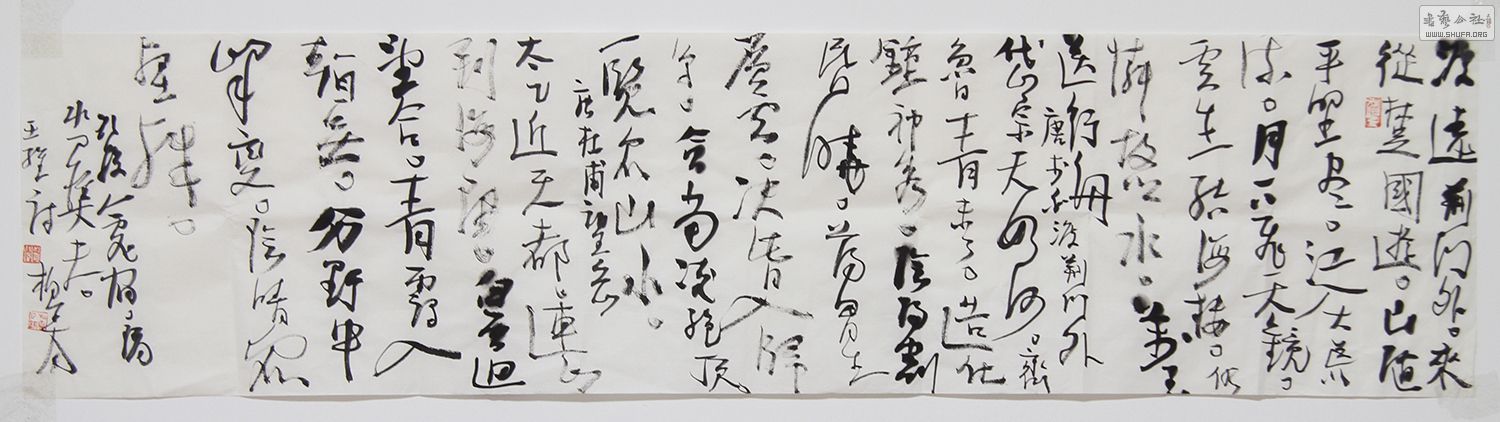 書藝公社
WWW.SHUFA.ORG
渡遠荆門外。來
從楚國遊。山隨
平野盡。江入大荒
流。月下飛天鏡。
雲生結海樓。仍
憐故鄉水。萬里
送行舟
唐李白渡荆門外
岱宗夫如何。齊
魯青未了。造化
鍾神秀。陰陽割
昏曉。蕩胸生
層雲。决眥入歸
鳥。會當凌絶頂
一覽衆山小。
唐杜甫望岳
太乙近天都。連山
到海隅。白雲迴
望合。青靄入
看無。分野中
峰變。陰晴衆
壑殊。
欲投人處宿。隔
水問樵夫。
王維詩